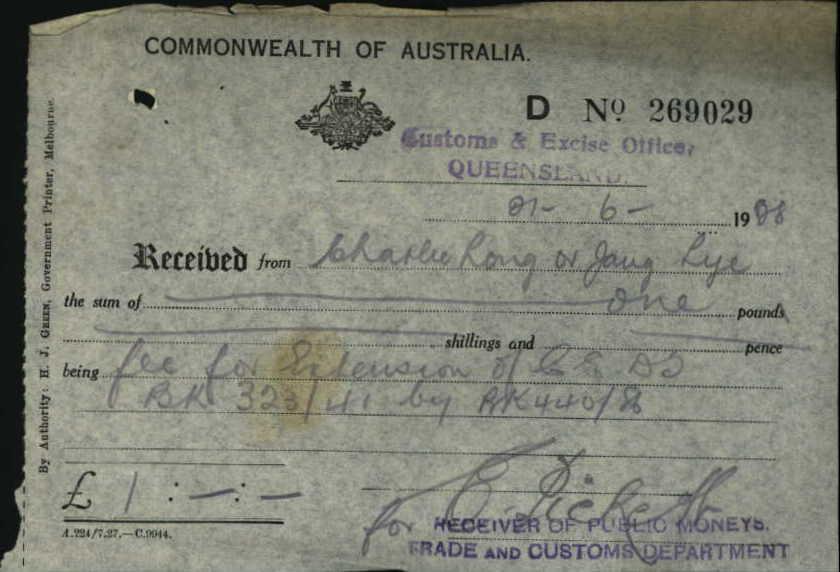 COMMONWEALTH OF AUSTRALIA.
D Nº 269029
Customs & Excise Office,
QUEENSLAND.
21- 6- 1928
Received from Charlie Long or Jang Lye
the sum of One pounds
shillings and pence
being fee for Extension of C E D T
BK 323/41 by BK 440/86
£ 1 : — : —
for
RECEIVER OF PUBLIC MONEYS.
TRADE AND CUSTOMS DEPARTMENT
A.224/7.27.—C.9944.
By Authority: H. J. GREEN, Government Printer, Melbourne.